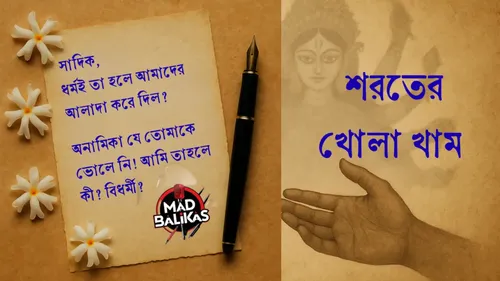 সাদিক,
ধর্মই তা হলে আমাদের
আলাদা করে দিল?
অনামিকা যে তোমাকে
ভোলে নি! আমি তাহলে
কী? বিধর্মী?
MAD
BALIKAS
শরতের
খোলা খাম